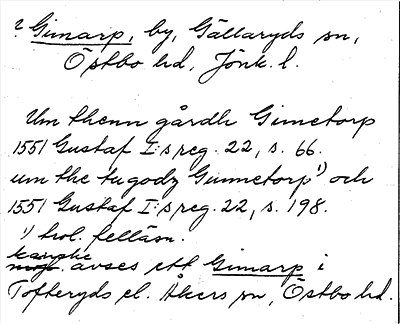 ? Gimarp, by, Gällaryds sn,
Östbo hd, Jönk. l.
Um thenn gårdh Gimetorp
1551 Gustaf I:s reg. 22, s. 66.
um the tu godz Gunnetorp¹⁾ och
1551 Gustaf I:s reg. 22, s. 198.
¹⁾ trol. felläsn.
kanske avses ett Gimarp i
Tofteryds el. Åkers sn, Östbo hd.